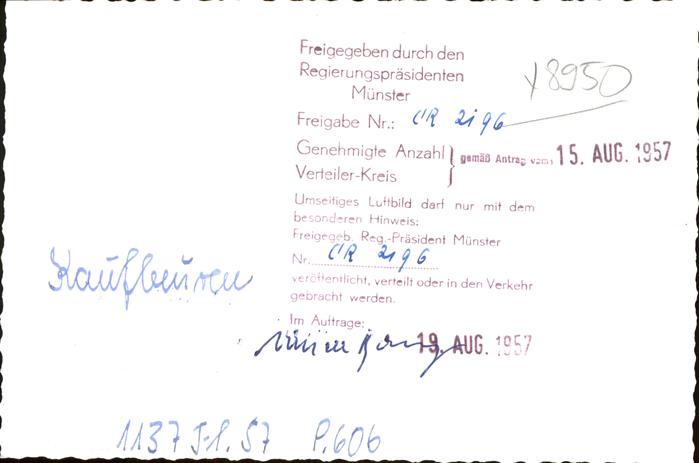 Freigegeben durch den
Regierungspräsidenten
Münster
Y8950
Freigabe Nr.: CR 2196
Genehmigte Anzahl
Verteiler-Kreis
gemäß Antrag vom: 15. AUG. 1957
Umseitiges Luftbild darf nur mit dem
besonderen Hinweis:
Freigegeb. Reg.-Präsident Münster
Nr. CR 2196
veröffentlicht, verteilt oder in den Verkehr
gebracht werden.
Im Auftrage:
19. AUG. 1957
Kaufbeuren
1137 P.606